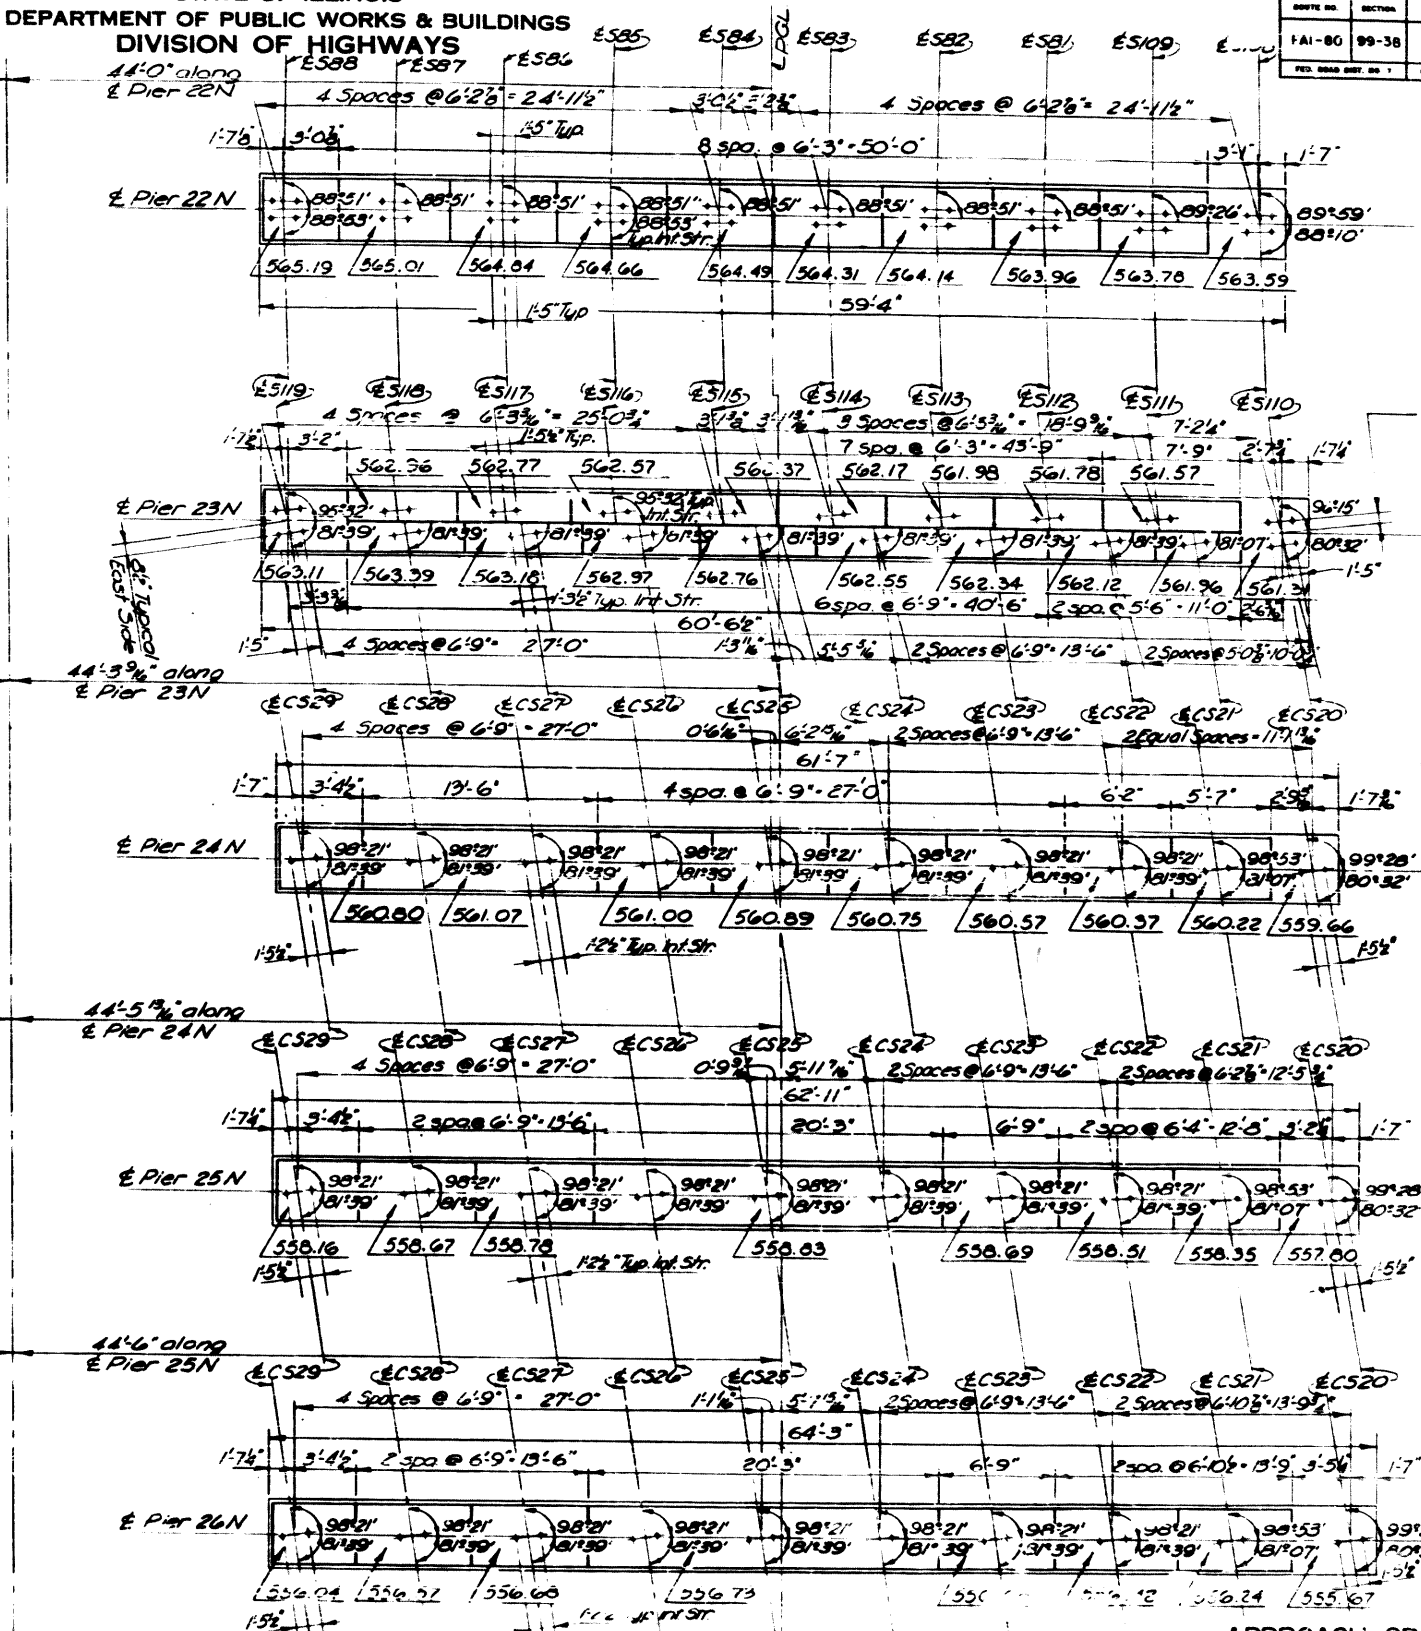 DEPARTMENT OF PUBLIC WORKS & BUILDINGS
DIVISION OF HIGHWAYS
ROUTE NO. SECTION
FAI-80 99-3B
44'-0" along
℄ Pier 22N
℄S88 ℄S87 ℄S86 ℄S85 ℄S84 ℄S83 ℄S82 ℄S81 ℄S109
4 Spaces @ 6'-2⅞" = 24'-11½" 4 Spaces @ 6'-2⅞" = 24'-11½"
1'-7⅛" 3'-0⅞" 1'-5" Typ. 8 spa. @ 6'-3" = 50'-0" 3'-1" 1'-7"
℄ Pier 22N
88°51' 88°51' 88°51' 88°51' 88°51' 88°51' 88°51' 88°51' 89°26' 89°59'
88°53' 88°53' 88°10'
Typ. Int. Str.
565.19 565.01 564.84 564.66 564.49 564.31 564.14 563.96 563.78 563.59
1'-5" Typ 59'-4"
℄S119 ℄S118 ℄S117 ℄S116 ℄S115 ℄S114 ℄S113 ℄S112 ℄S111 ℄S110
4 Spaces @ 6'-3 3/16" = 25'-0¾" 3 Spaces @ 6'-3 3/16" = 18'-9 9/16" 7'-2¼"
1'-7½" 3'-2" 1'-5½" Typ. 7 spa. @ 6'-3" = 43'-9" 7'-9" 2'-7¾" 1'-7¼"
562.96 562.77 562.57 562.37 562.17 561.98 561.78 561.57
℄ Pier 23N
95°32' 95°32' Typ. Int. Str. 96°15'
81°39' 81°39' 81°39' 81°39' 81°39' 81°39' 81°39' 81°39' 81°07' 80°32'
563.11 563.39 563.18 562.97 562.76 562.55 562.34 562.12 561.96
1'-5"
1'-3½" Typ. Int. Str. 6 spa. @ 6'-9" = 40'-6" 2 spa. @ 5'-6" = 11'-0"
60'-6½"
8½" Typical
East Side
1'-5" 4 Spaces @ 6'-9" = 27'-0" 1'-3 1/16" 5'-5 5/16" 2 Spaces @ 6'-9" = 13'-6"
44'-3 9/16" along
℄ Pier 23N
℄CS29 ℄CS28 ℄CS27 ℄CS26 ℄CS25 ℄CS24 ℄CS23 ℄CS22 ℄CS21 ℄CS20
4 Spaces @ 6'-9" = 27'-0" 0'-6 1/16" 6'-2 15/16" 2 Spaces @ 6'-9" = 13'-6" 2 Equal Spaces = 11'-7 13/16"
61'-7"
1'-7" 3'-4½" 13'-6" 4 spa. @ 6'-9" = 27'-0" 6'-2" 5'-7" 1'-7 3/16"
℄ Pier 24N
98°21' 98°21' 98°21' 98°21' 98°21' 98°21' 98°21' 98°21' 98°53' 99°28'
81°39' 81°39' 81°39' 81°39' 81°39' 81°39' 81°39' 81°39' 81°07' 80°32'
560.80 561.07 561.00 560.89 560.75 560.57 560.37 560.22 559.66
1'-5½" 1'-2½" Typ. Int. Str. 1'-5½"
44'-5 13/16" along
℄ Pier 24N
℄CS29 ℄CS28 ℄CS27 ℄CS26 ℄CS25 ℄CS24 ℄CS23 ℄CS22 ℄CS21 ℄CS20
4 Spaces @ 6'-9" = 27'-0" 0'-9 9/16" 5'-11 7/16" 2 Spaces @ 6'-9" = 13'-6" 2 Spaces @ 6'-2⅞" = 12'-5¾"
62'-11"
1'-7¼" 3'-4½" 2 spa. @ 6'-9" = 13'-6" 20'-3" 6'-9" 2 spa. @ 6'-4" = 12'-8" 1'-7"
℄ Pier 25N
98°21' 98°21' 98°21' 98°21' 98°21' 98°21' 98°21' 98°21' 98°53' 99°28'
81°39' 81°39' 81°39' 81°39' 81°39' 81°39' 81°39' 81°39' 81°07' 80°32'
558.16 558.67 558.78 558.83 558.69 558.51 558.35 557.80
1'-5½" 1'-2½" Typ. Int. Str. 1'-5½"
44'-6" along
℄ Pier 25N
℄CS29 ℄CS28 ℄CS27 ℄CS26 ℄CS25 ℄CS24 ℄CS23 ℄CS22 ℄CS21 ℄CS20
4 Spaces @ 6'-9" = 27'-0" 1'-1 1/16" 5'-7 15/16" 2 Spaces @ 6'-9" = 13'-6" 2 Spaces @ 6'-10⅞" = 13'-9¾"
64'-3"
1'-7¼" 3'-4½" 2 spa. @ 6'-9" = 13'-6" 20'-3" 6'-9" 2 spa. @ 6'-10½" = 13'-9" 3'-5¼" 1'-7"
℄ Pier 26N
98°21' 98°21' 98°21' 98°21' 98°21' 98°21' 98°21' 98°21' 98°53'
81°39' 81°39' 81°39' 81°39' 81°39' 81°39' 81°39' 81°39' 81°07'
556.04 556.57 556.68 556.73 556.24 555.67
1'-5½" 1'-5½"